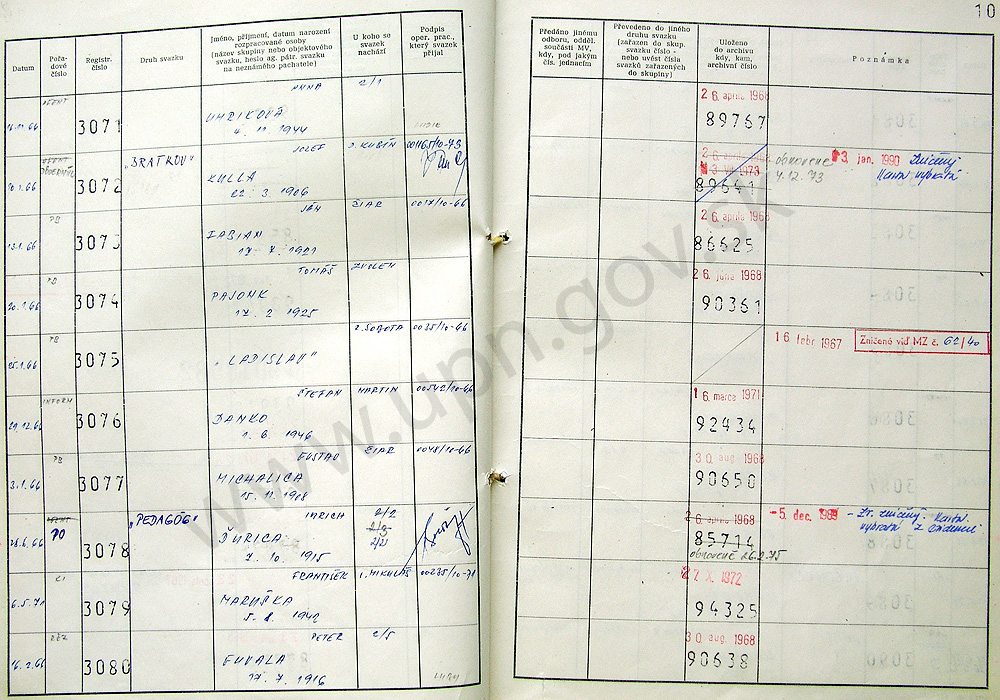 10
Datum
Pořa-
dové
číslo
Registr.
číslo
Druh svazku
Jméno, příjmení, datum narození
rozpracované osoby
(název skupiny nebo objektového
svazku, heslo ag. pátr. svazku
na neznámého pachatele)
U koho se
svazek
nachází
Podpis
oper. prac.,
který svazek
přijal
Předáno jinému
odboru, odděl.
součásti MV,
kdy, pod jakým
čís. jednacím
Převedeno do jiného
druhu svazku
(zařazen do skup.
svazku číslo -
nebo uvést čísla
svazků zařazených
do skupiny)
Uloženo
do archivu
kdy, kam,
archivní číslo
Poznámka
3071
ANNA
UHRIKOVÁ
4. 11. 1944
2/1
26. apríla 1968
89767
3072
„BRATKOV"
JOZEF
KULLA
22. 3. 1906
J. KUBÍŇ
00165/10-73
89641
obnovené
4.12.73
3. jan. 1990
Zničený
3073
JÁN
FABIAN
17. 7. 1921
ČIAR
0017/10-66
26. apríla 1968
86625
20.1.66
PB
3074
TOMÁŠ
PAJONK
17. 2. 1925
ZVOLEN
26. júna 1968
90361
25.1.66
PB
3075
„LADISLAV"
R. SOBOTA
0025/10-66
16 febr 1967
Zničené viď MZ č. 62/40
INFORM
3076
ŠTEFAN
DANKO
1. 6. 1946
MARTIN
00542/10-66
16. marca 1971
92434
3.1.66
PB
3077
GUSTAV
MICHALICA
15. 11. 1908
ČIAR
0048/10-66
30 aug. 1968
90650
28.6.66
3078
„PEDAGÓG"
IMRICH
ĎURICA
7. 10. 1915
2/2
26. apríla 1968
85714
obnovené 26.2.75
-5. dec. 1989
6.5.71
3079
FRANTIŠEK
MARUŠKA
5. 8. 1942
L. MIKULÁŠ
00285/10-71
27 X. 1972
94325
16.2.66
3080
PETER
17. 7. 1916
2/5
30 aug. 1968
90638
www.upn.gov.sk